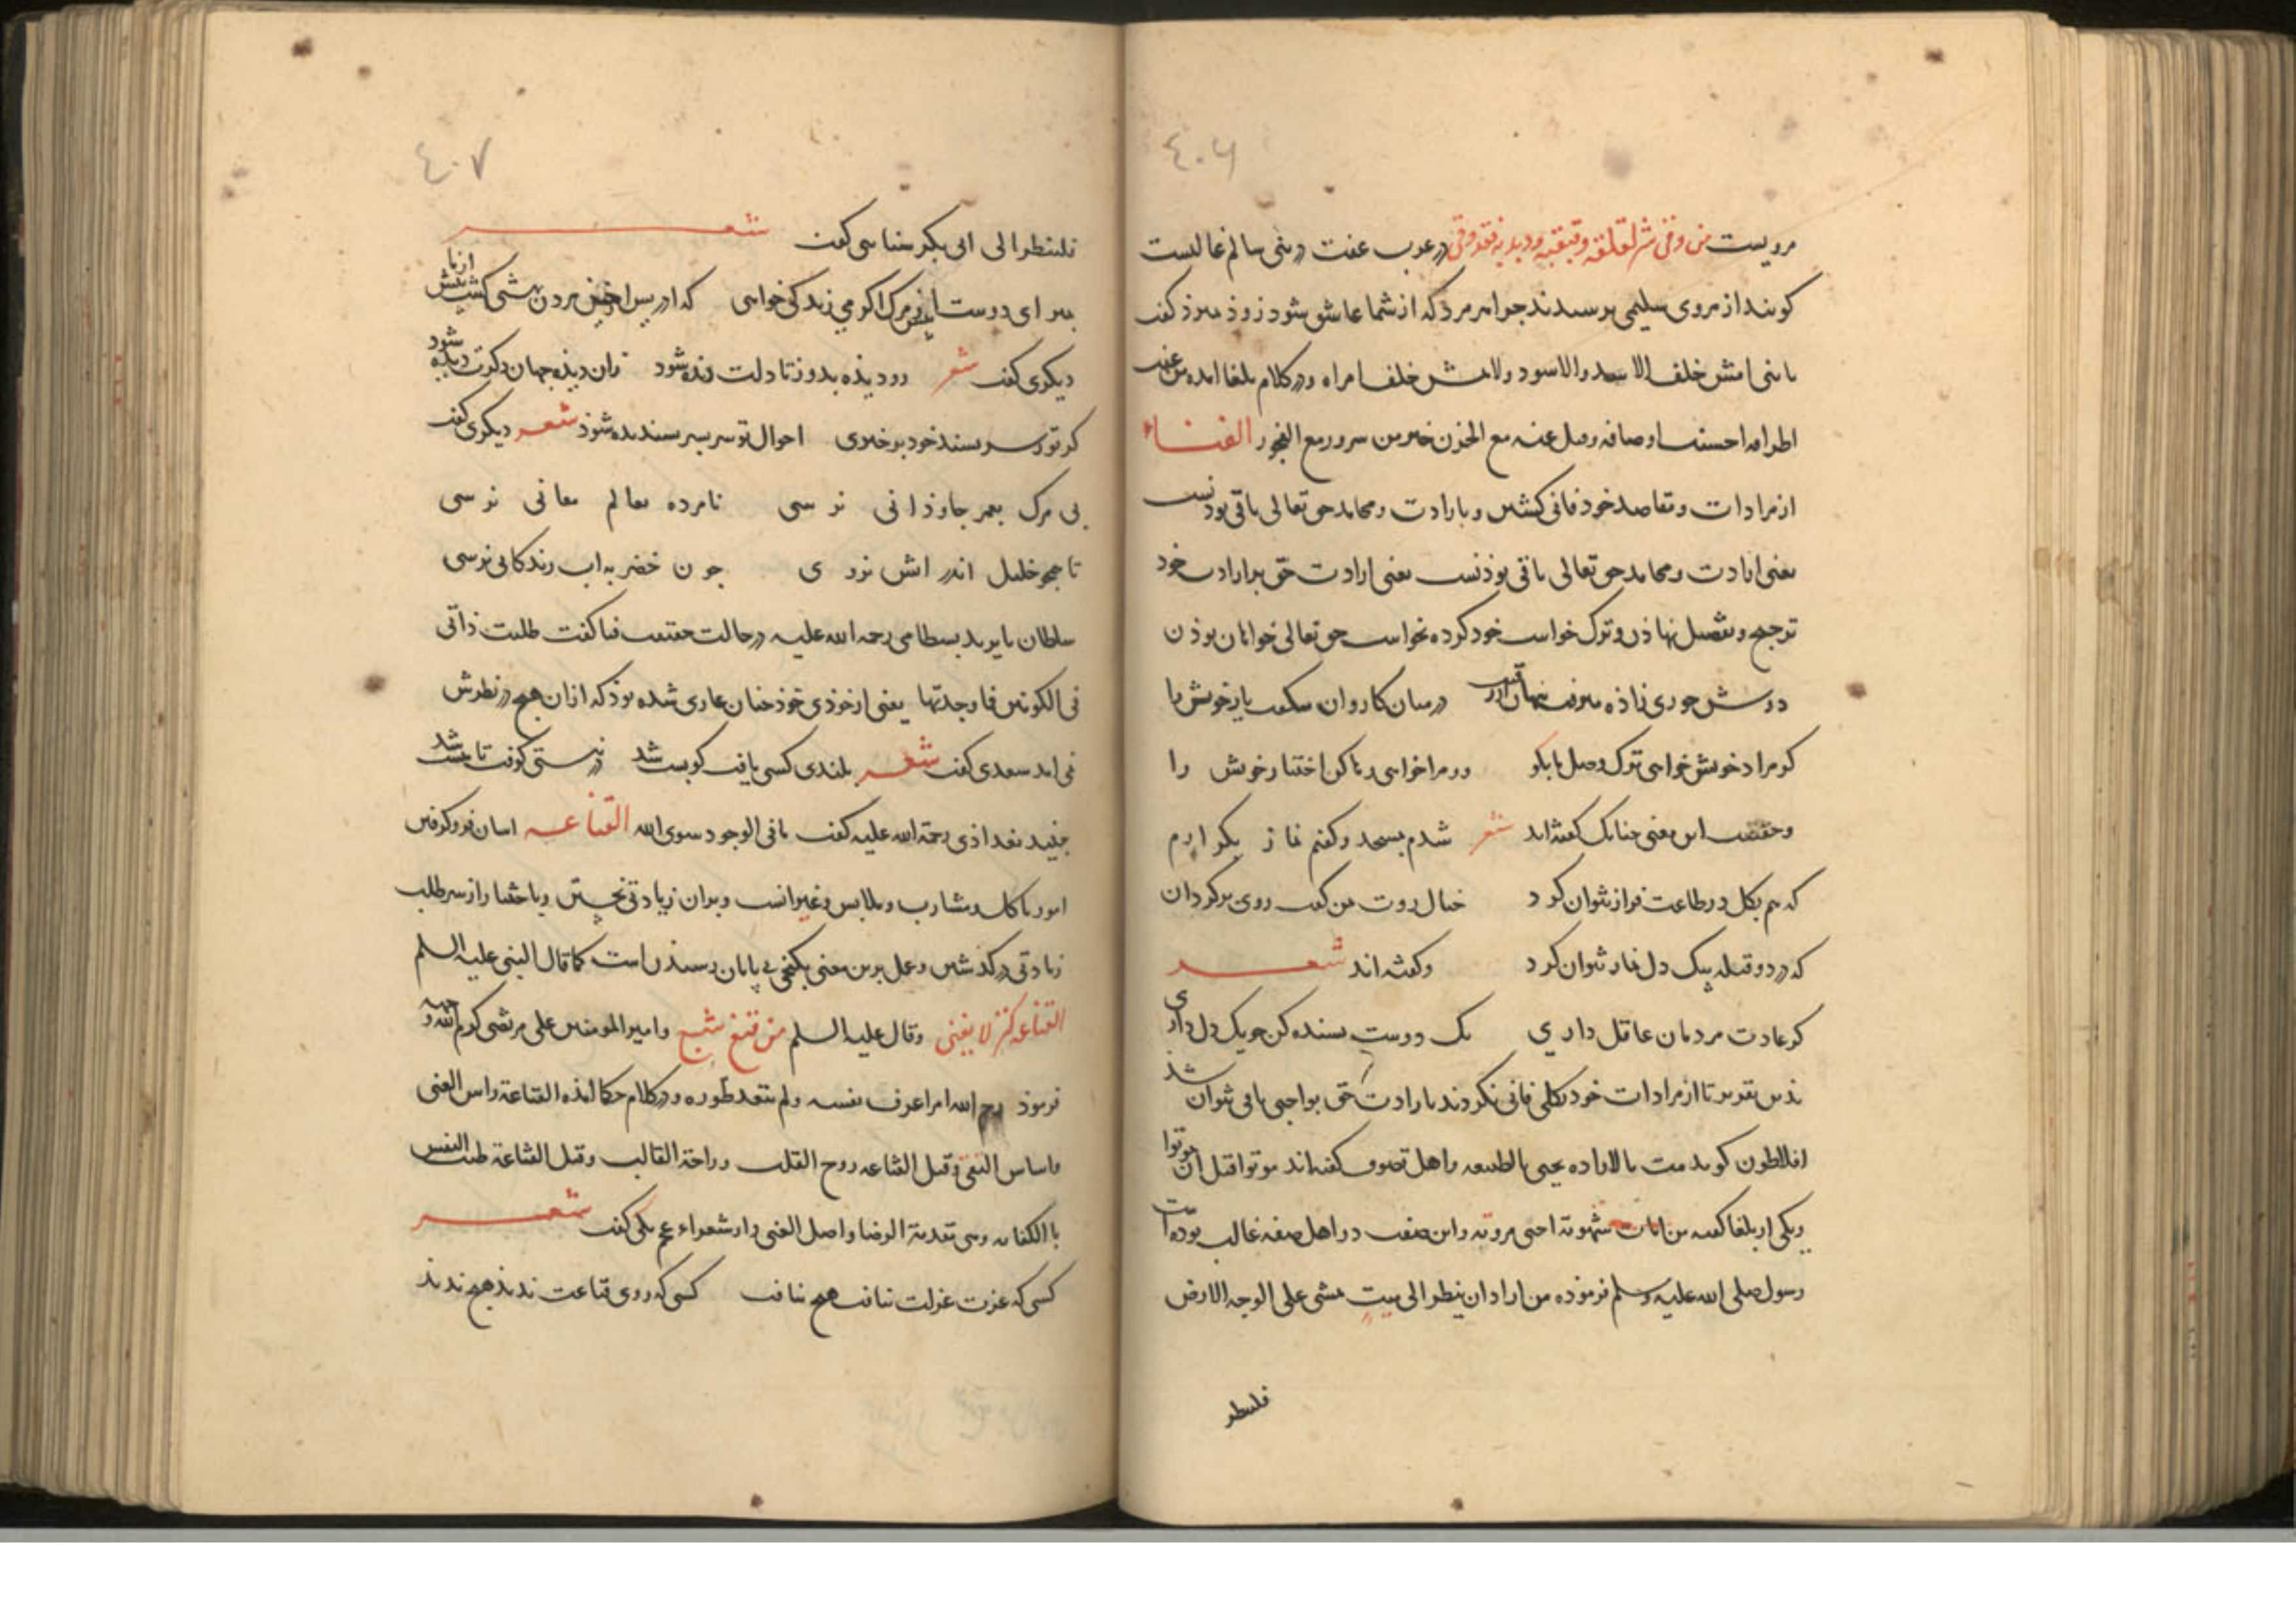 ٤٠٦
مرویست من وقی شر لقلقه و قبقبه و ذبذبه فقد وقی در عرب عفت در بنی سالم غالبست
کویند از مروی سلیمی برسیدند جرا هر مرد که از شما عاشق شود زود میرذ کفت
یا بنی امش خلف الاسد والاسود ولا تمش خلف امراه ودر کلام بلغا امده من عفت
اطرافه احسنت اوصافه وقیل عنه مع الحزن خیر من سرور مع الفجور الفناء
از مرادات و مقاصد خود فانی کشتن و بارادت و محامد حق تعالی باقی بودنست
یعنی ارادت و محامد حق تعالی باقی بوذنست یعنی ارادت حق بر ارادت خود
ترجیح و تفضیل نهاذن و ترک خواست خود کرده بخواست حق تعالی خواهان بوذن
دوش حوری زاذه میرفت بنهان از رقیب در میان کاروان میکفت یار خویش را
کر مراد خویش خواهی ترک وصل ما بکو ور مرا خواهی رها کن اختیار خویش را
وحقیقت این معنی جنانک کفته اند شعر شدم بمسجد و کفتم نماز بکزارم
که هم بکل در طاعت فراز نتوان کرد خیال روت من کفت روی برکردان
که در دو قبله بیک دل نماز نتوان کرد وکفته اند شعر
کر عادت مردمان عاقل داری یک دوست بسنده کن جو یک دل داری
بذین تقریر تا از مرادات خود بکلی فانی نکردند بارادت حق بواجبی باقی نتوان شذ
افلاطون کوید مت بالاراده یحیی بالطبیعه واهل تصوف کفته اند موتوا قبل ان تموتوا
ویکی از بلغا کفته من امات شهوته احیی مروته واین صفت در اهل صفه غالب بوده است
رسول صلی الله علیه وسلم فرموذه من اراد ان ینظر الی میت یمشی علی الوجه الارض
فلینظر
٤٠٧
فلینظر الی ابی بکر سنایی کفت شعر
بمیر ای دوست پیش از مرک اکر می زندکی خواهی که ادریس از جنین مردن بهشتی کشت پیش از ما
دیکری کفت شعر رو دیذه بدوز تا دلت دیذه شود زان دیذه جهان دکرت دیده شود
کر تو ز سر بسند خود برخیزی احوال تو سر بسر بسندیده شوذ شعر دیکری کفت
بی مرک بعمر جاوذانی نرسی نامرده بعالم معانی نرسی
تا همجو خلیل اندر اتش نروی جون خضر به اب زندکانی نرسی
سلطان بایزید بسطامی رحمه الله علیه در حالت حقیقت فنا کفت طلبت ذاتی
فی الکونین فما وجدتها یعنی از خوذی خوذ جنان عاری شده بوذ که از ان هیج در نظرش
نمی امد سعدی کفت شعر بلندی کسی یافت کو بست شد در نیستی کوفت تا هست شد
جنید بغداذی رحمة الله علیه کفت ما فی الوجود سوی الله القناعه اسان فرو کرفتن
امور ماکل و مشارب و ملابس و غیر انست و بران زیادتی نجستن و باختیار از سر طلب
زیادتی درکذشتن و عمل برین معنی بکنجی بی پایان رسیذن است کما قال النبی علیه السلم
القناعه کنز لا یفنی وقال علیه السلم من قنع شبع وامیر المومنین علی مرتضی کرم الله وجهه
فرموذ رحم الله امرا عرف نفسه ولم یتعد طوره ودر کلام حکما امذه القناعة راس الغنی
واساس التقی وقیل القناعه روح القلب وراحة القالب وقیل القناعة طیب النفس
باالکفایه وهی تقدمة الرضا واصل الغنی واز شعراء عجم یکی کفت شعر
کسی که عزت عزلت نیافت هیج نیافت کسی که روی قناعت ندیذ هیج ندیذ